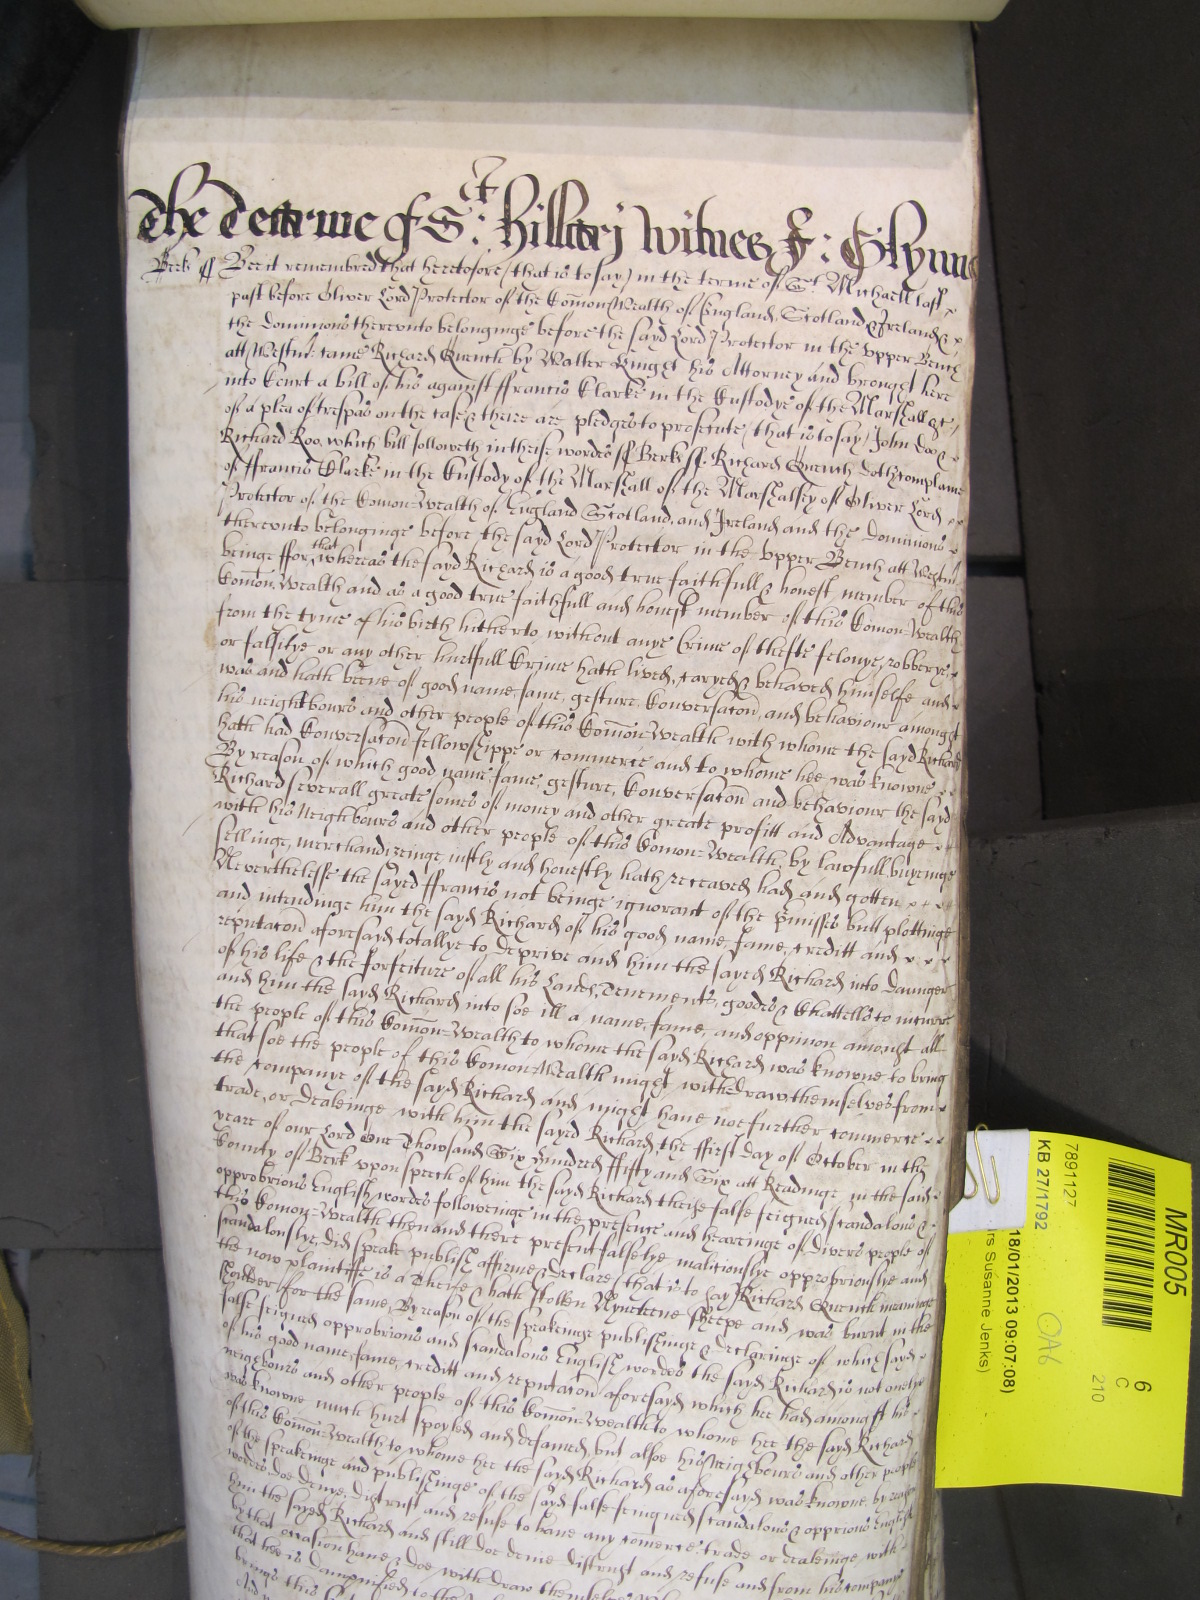 The Tearme of St: Hillarij Witnes J: Glynne
Berk ss Bee it remembred that heretofore (that is to say) in the terme of St. Michaell last
past before Oliver Lord Protector of the Comon Wealth of England, Scotland & Ireland &
the dominions thereunto belonginge before the sayd Lord Protector in the upper Bench
att Westm: came Richard Quench by Walter Knight his Attorney and brought here
into Court a bill of his against ffrancis Clarke in the Custodye of the Marshall &c
of a plea of trespas on the case & there are pledges to prosecute (that is to say) John Doo &
Richard Roo, which bill followeth in theise wordes ss Berks ss. Richard Quench doth complaine
of ffrancis Clarke in the Custody of the Marshall of the Marshalsey of Oliver Lord
Protector of the Comon-Wealth of England Scotland, and Ireland and the dominions
thereunto belonginge before the sayd Lord Protector in the Upper Bench att Westm.
beinge ffor that whereas the sayd Richard is a good true faithfull & honest member of this
Comon-Wealth and as a good true faithfull and honest member of this Comon-Wealth
from the tyme of his birth hitherto without anye Crime of thefte felonye, robberye,
or falsitye or any other hurtfull Crime hath lived, caryed & behaved himselfe and
was and hath beene of good name, fame, gesture, Conversacon, and behaviour amongst
his neighbours and other people of this Comon-Wealth with whome the sayd Richard
hath had Conversacon fellowshippe or commerce and to whome hee was knowne
By reason of which good name, fame, gesture, Conversacon and behaviour the sayd
Richard severall greate somes of money and other greate profitt and Advantage
with his Neighbours and other people of this Comon-Wealth, by lawfull buyeinge
sellinge, merchandizeinge, iustly and honestly hath receaved had and gotten
Neverthelesse the sayed ffrancis not beinge ignorant of the pmisses but plottinge
and intendinge him the sayd Richard of his good name, fame, creditt and
reputacon aforesayd totallye to deprive and him the sayed Richard into daunger
of his life & the forfeiture of all his Lands, Tenements, goodes & Chattells to incurre
and him the sayd Richard into soe ill a name, fame, and oppinion amonst all
the people of this Comon-Wealth to whome the sayd Richard was knowne to bring
that soe the people of this Comon-Wealth might withdraw themselves from
the companye of the sayd Richard and might have noe further commerce
trade, or dealeinge with him the sayed Richard, the ffirst day of October in the
yeare of our Lord One Thowsand Six Hundred ffifty and Six att Readinge in the said
County of Berk upon speech of him the sayd Richard theise false feigned scandalous &
opprobrious English wordes followeinge in the presence and heareinge of divers people of
this Comon-Wealth then and there present falselye malitiouslye opprobriouslye and
scandalouslye, did speak publish affirme & declare (that is to say) Richard Quench meaninge
the now plaintiffe is a Theife & hath stollen Nyneteene Sheepe and was burnt in the
for the same, By reason of the speakinge publishinge & declaringe of which sayd
false feigned opprobrious and scandalous English wordes the sayd Richard is not onelye
of his good name, fame, creditt and reputacon aforesayd which hee had amongst his
neighbours and other people of this Comon-Wealth to whome hee the sayd Richard
was knowne much hurt spoyled and defamed, but alsoe his Neighbours and other people
of this Comon-Wealth to whome hee the sayd Richard as aforesayd was knowne, by reason
of the speakeinge and publishinge of the sayd false feingned scandalous & opprious English
wordes doe denye, distrust and refuse to have any comerce trade or dealeinge with
him the sayed Richard and still doe denie distrust and refuse and from his companye
by that occasion have & doe with draw themselves
that hee is dampnified to the
brings this
And
MR005
6
C
210
7891127
KB 27/1792
OA6
18/01/2013 09:07:08)
rs Susanne Jenks)